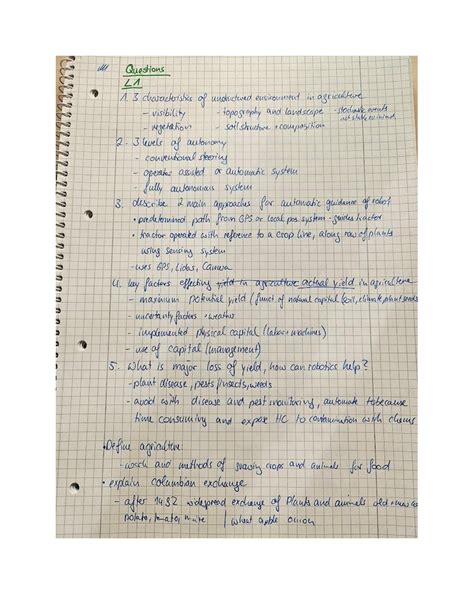 Questions
L1
1. 3 characteristics of unstructured environment in agriculture
- visibility - topography and landscape - stochastic events
- vegetation - soil structure + composition
2. 3 levels of autonomy
- conventional steering
- operator assisted or automatic system
- fully autonomous system
3. describe 2 main approaches for automatic guidance of robot
• predetermined path from GPS or local pos. system - guides tractor
• tractor operated with reference to a crop line, along row of plants
using sensing system
- uses GPS, Lidar, Camera
4. key factors effecting yield in agriculture actual yield in agriculture
- maximum potential yield (funct of natural capital (soil, climate, plant seeds
- uncertainty factors + weather
- implemented physical capital (labor + machines)
- use of capital (management)
5. What is major loss of yield, how can robotics help?
- plant disease, pests/insects, weeds
- avoid with disease and pest monitoring, automate because
time consuming and expose to contamination with chems
• Define agriculture:
- work and methods of growing crops and animals for food
• explain columbian exchange
- after 1492 widespread exchange of Plants and animals old + new
potato, tomato, | wheat apple onion